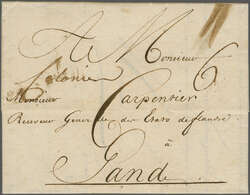 A Monsieur
Colonie 6
Monsieur Carpentier
Receveur General des Etats de flandre
à
Gand